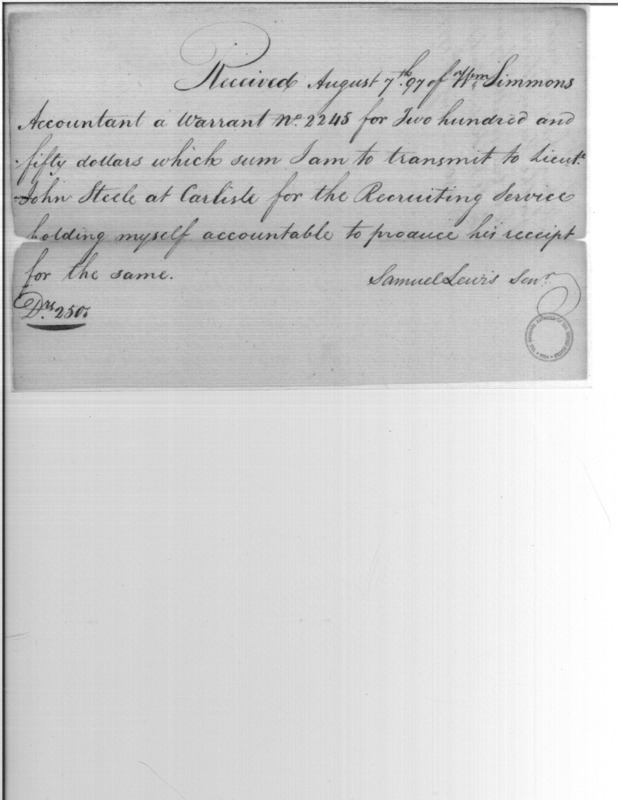 Received August 7th. 97 of Wm. Simmons
Accountant a Warrant No. 2245 for Two hundred and
fifty dollars which sum I am to transmit to Lieut.
John Steele at Carlisle for the Recruiting Service
holding myself accountable to produce his receipt
for the same.
Samuel Lewis Senr.
Drs. 250.